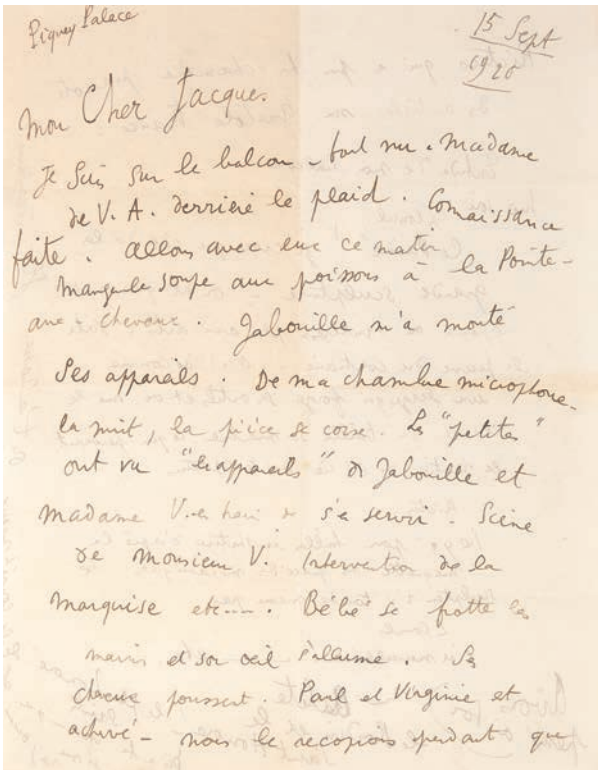 Piquey Palace
15 Sept
1920
Mon Cher Jacques
Je suis sur le balcon - tout nu. Madame
de V. A. derrière le plaid. Connaissance
faite. Allons avec eux ce matin
manger le soupe aux poissons à la Pointe-
aux-chevaux. Jabouille m'a monté
ses appareils. De ma chambre microphone-
la nuit, la pièce se corse. Les "petites"
ont vu "les appareils" de Jabouille et
Madame V. s'en servir. Scène
de Monsieur V. Intervention de la
Marquise etc.... Bébé se frotte les
mains et son œil s'allume. Ses
cheveux poussent. Paul et Virginie est
achivé - nous le recopions pendant que